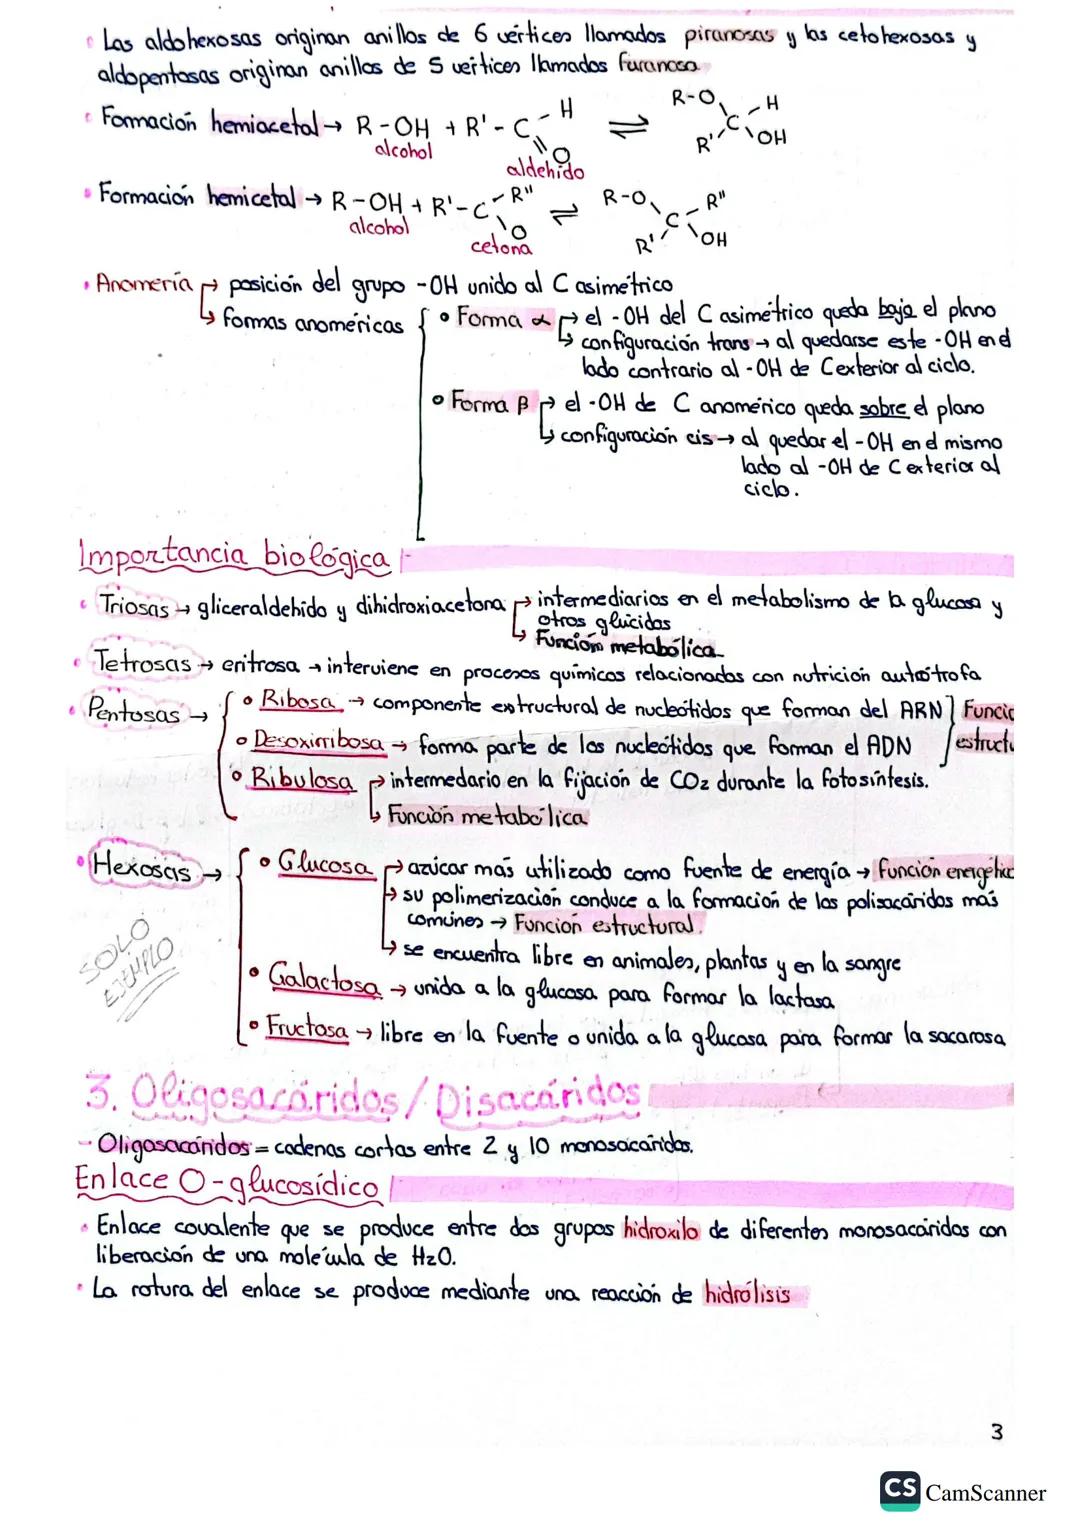 Las aldohexosas originan anillos de 6 vértices llamados piranosas y las cetohexosas y
aldopentosas originan anillos de 5 vertices llamados furanosa
Formación hemiacetal → R-OH + R'-C-H=O ⇌ R-O R' C H OH
alcohol aldehido
Formación hemicetal → R-OH + R'-C-R''=O ⇌ R-O R' C R'' OH
alcohol cetona
Anomería → posición del grupo -OH unido al C asimétrico
↳ formas anoméricas
Forma α → el -OH del C asimétrico queda bajo el plano
↳ configuración trans → al quedarse este -OH en el
lado contrario al -OH de C exterior al ciclo.
Forma β → el -OH de C anomérico queda sobre el plano
↳ configuración cis → al quedar el -OH en el mismo
lado al -OH de C exterior al
ciclo.
Importancia biológica
Triosas → gliceraldehido y dihidroxiacetona → intermediarios en el metabolismo de la glucosa y
otros glúcidos
↳ Función metabólica
Tetrosas → eritrosa → interviene en procesos químicos relacionados con nutrición autótrofa
Pentosas →
Ribosa → componente estructural de nucleótidos que forman del ARN
Desoxirribosa → forma parte de los nucleótidos que forman el ADN
Funcio
estructu
Ribulosa → intermedario en la fijación de CO2 durante la fotosíntesis.
↳ Función metabólica
Hexosas →
Glucosa → azúcar más utilizado como fuente de energía → función energétic
↳ su polimerización conduce a la formación de los polisacáridos más
comunes → Función estructural.
↳ se encuentra libre en animales, plantas y en la sangre
SOLO
EJEMPLO
Galactosa → unida a la glucosa para formar la lactosa
Fructosa → libre en la fuente o unida a la glucosa para formar la sacarosa
3. Oligosacáridos/Disacáridos
- Oligosacáridos = cadenas cortas entre 2 y 10 monosacáridos.
Enlace O-glucosídico
Enlace covalente que se produce entre dos grupos hidroxilo de diferentes monosacáridos con
liberación de una molécula de H2O.
La rotura del enlace se produce mediante una reacción de hidrólisis
3
CS CamScanner